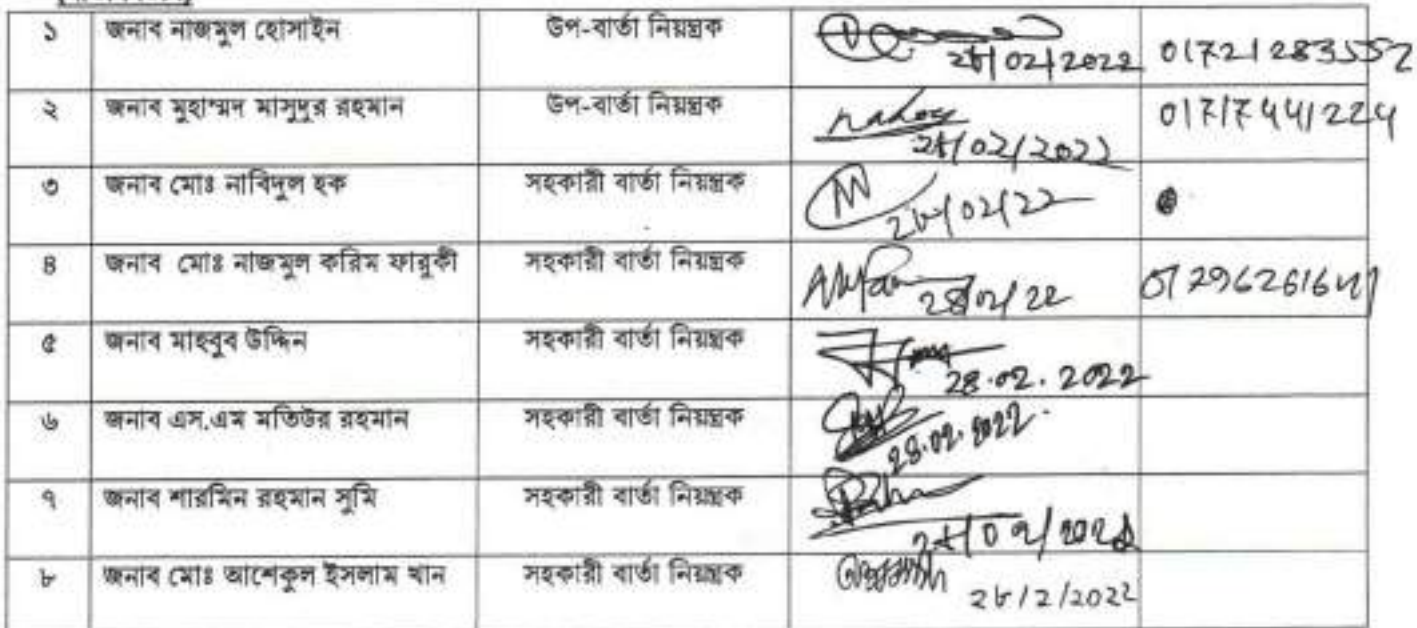 ১ জনাব নাজমুল হোসাইন উপ-বার্তা নিয়ন্ত্রক 28/02/2022 01721283552
২ জনাব মুহাম্মদ মাসুদুর রহমান উপ-বার্তা নিয়ন্ত্রক 28/02/2022 01717441224
৩ জনাব মোঃ নাবিদুল হক সহকারী বার্তা নিয়ন্ত্রক ২৮/02/22
৪ জনাব মোঃ নাজমুল করিম ফারুকী সহকারী বার্তা নিয়ন্ত্রক 28/02/22
৫ জনাব মাহবুব উদ্দিন সহকারী বার্তা নিয়ন্ত্রক 28.02.2022
৬ জনাব এস.এম মতিউর রহমান সহকারী বার্তা নিয়ন্ত্রক 28.02.2022
৭ জনাব শারমিন রহমান সুমি সহকারী বার্তা নিয়ন্ত্রক
৮ জনাব মোঃ আশেকুল ইসলাম খান সহকারী বার্তা নিয়ন্ত্রক ২৮/2/2022